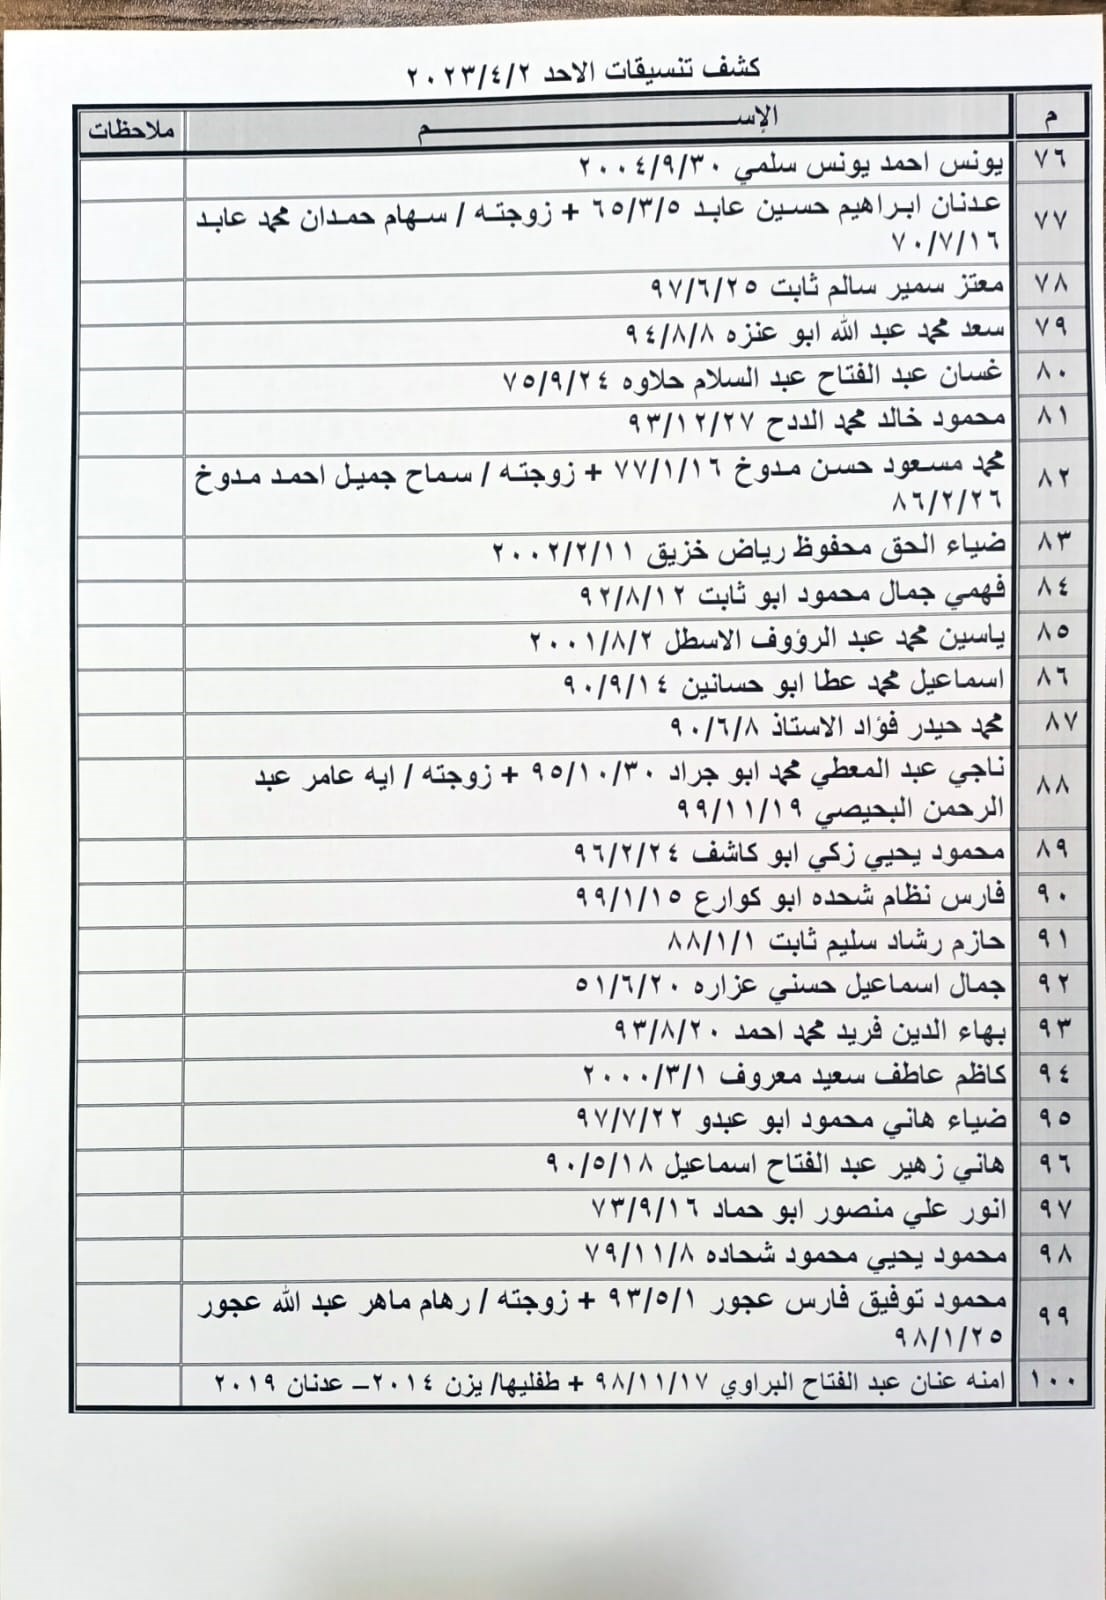 كشف تنسيقات الاحد ٢٠٢٣/٤/٢
م الإســــــــــم ملاحظات
٧٦ يونس احمد يونس سلمي ٢٠٠٤/٩/٣٠
٧٧ عدنان ابراهيم حسين عابد ٦٥/٣/٥ + زوجته / سهام حمدان محمد عابد
٧٠/٧/١٦
٧٨ معتز سمير سالم ثابت ٩٧/٦/٢٥
٧٩ سعد محمد عبد الله ابو عنزه ٩٤/٨/٨
٨٠ غسان عبد الفتاح عبد السلام حلاوه ٧٥/٩/٢٤
٨١ محمود خالد محمد الددح ٩٣/١٢/٢٧
٨٢ محمد مسعود حسن مدوخ ٧٧/١/١٦ + زوجته / سماح جميل احمد مدوخ
٨٦/٢/٢٦
٨٣ ضياء الحق محفوظ رياض خزيق ٢٠٠٢/٢/١١
٨٤ فهمي جمال محمود ابو ثابت ٩٢/٨/١٢
٨٥ ياسين محمد عبد الرؤوف الاسطل ٢٠٠١/٨/٢
٨٦ اسماعيل محمد عطا ابو حسانين ٩٠/٩/١٤
٨٧ محمد حيدر فؤاد الاستاذ ٩٠/٦/٨
٨٨ ناجي عبد المعطي محمد ابو جراد ٩٥/١٠/٣٠ + زوجته / ايه عامر عبد
الرحمن البحيصي ٩٩/١١/١٩
٨٩ محمود يحيي زكي ابو كاشف ٩٦/٢/٢٤
٩٠ فارس نظام شحده ابو كوارع ٩٩/١/١٥
٩١ حازم رشاد سليم ثابت ٨٨/١/١
٩٢ جمال اسماعيل حسني عزاره ٥١/٦/٢٠
٩٣ بهاء الدين فريد محمد احمد ٩٣/٨/٢٠
٩٤ كاظم عاطف سعيد معروف ٢٠٠٠/٣/١
٩٥ ضياء هاني محمود ابو عبدو ٩٧/٧/٢٢
٩٦ هاني زهير عبد الفتاح اسماعيل ٩٠/٥/١٨
٩٧ انور علي منصور ابو حماد ٧٣/٩/١٦
٩٨ محمود يحيي محمود شحاده ٧٩/١١/٨
٩٩ محمود توفيق فارس عجور ٩٣/٥/١ + زوجته / رهام ماهر عبد الله عجور
٩٨/١/٢٥
١٠٠ امنه عنان عبد الفتاح البراوي ٩٨/١١/١٧ + طفليها/ يزن ٢٠١٤– عدنان ٢٠١٩